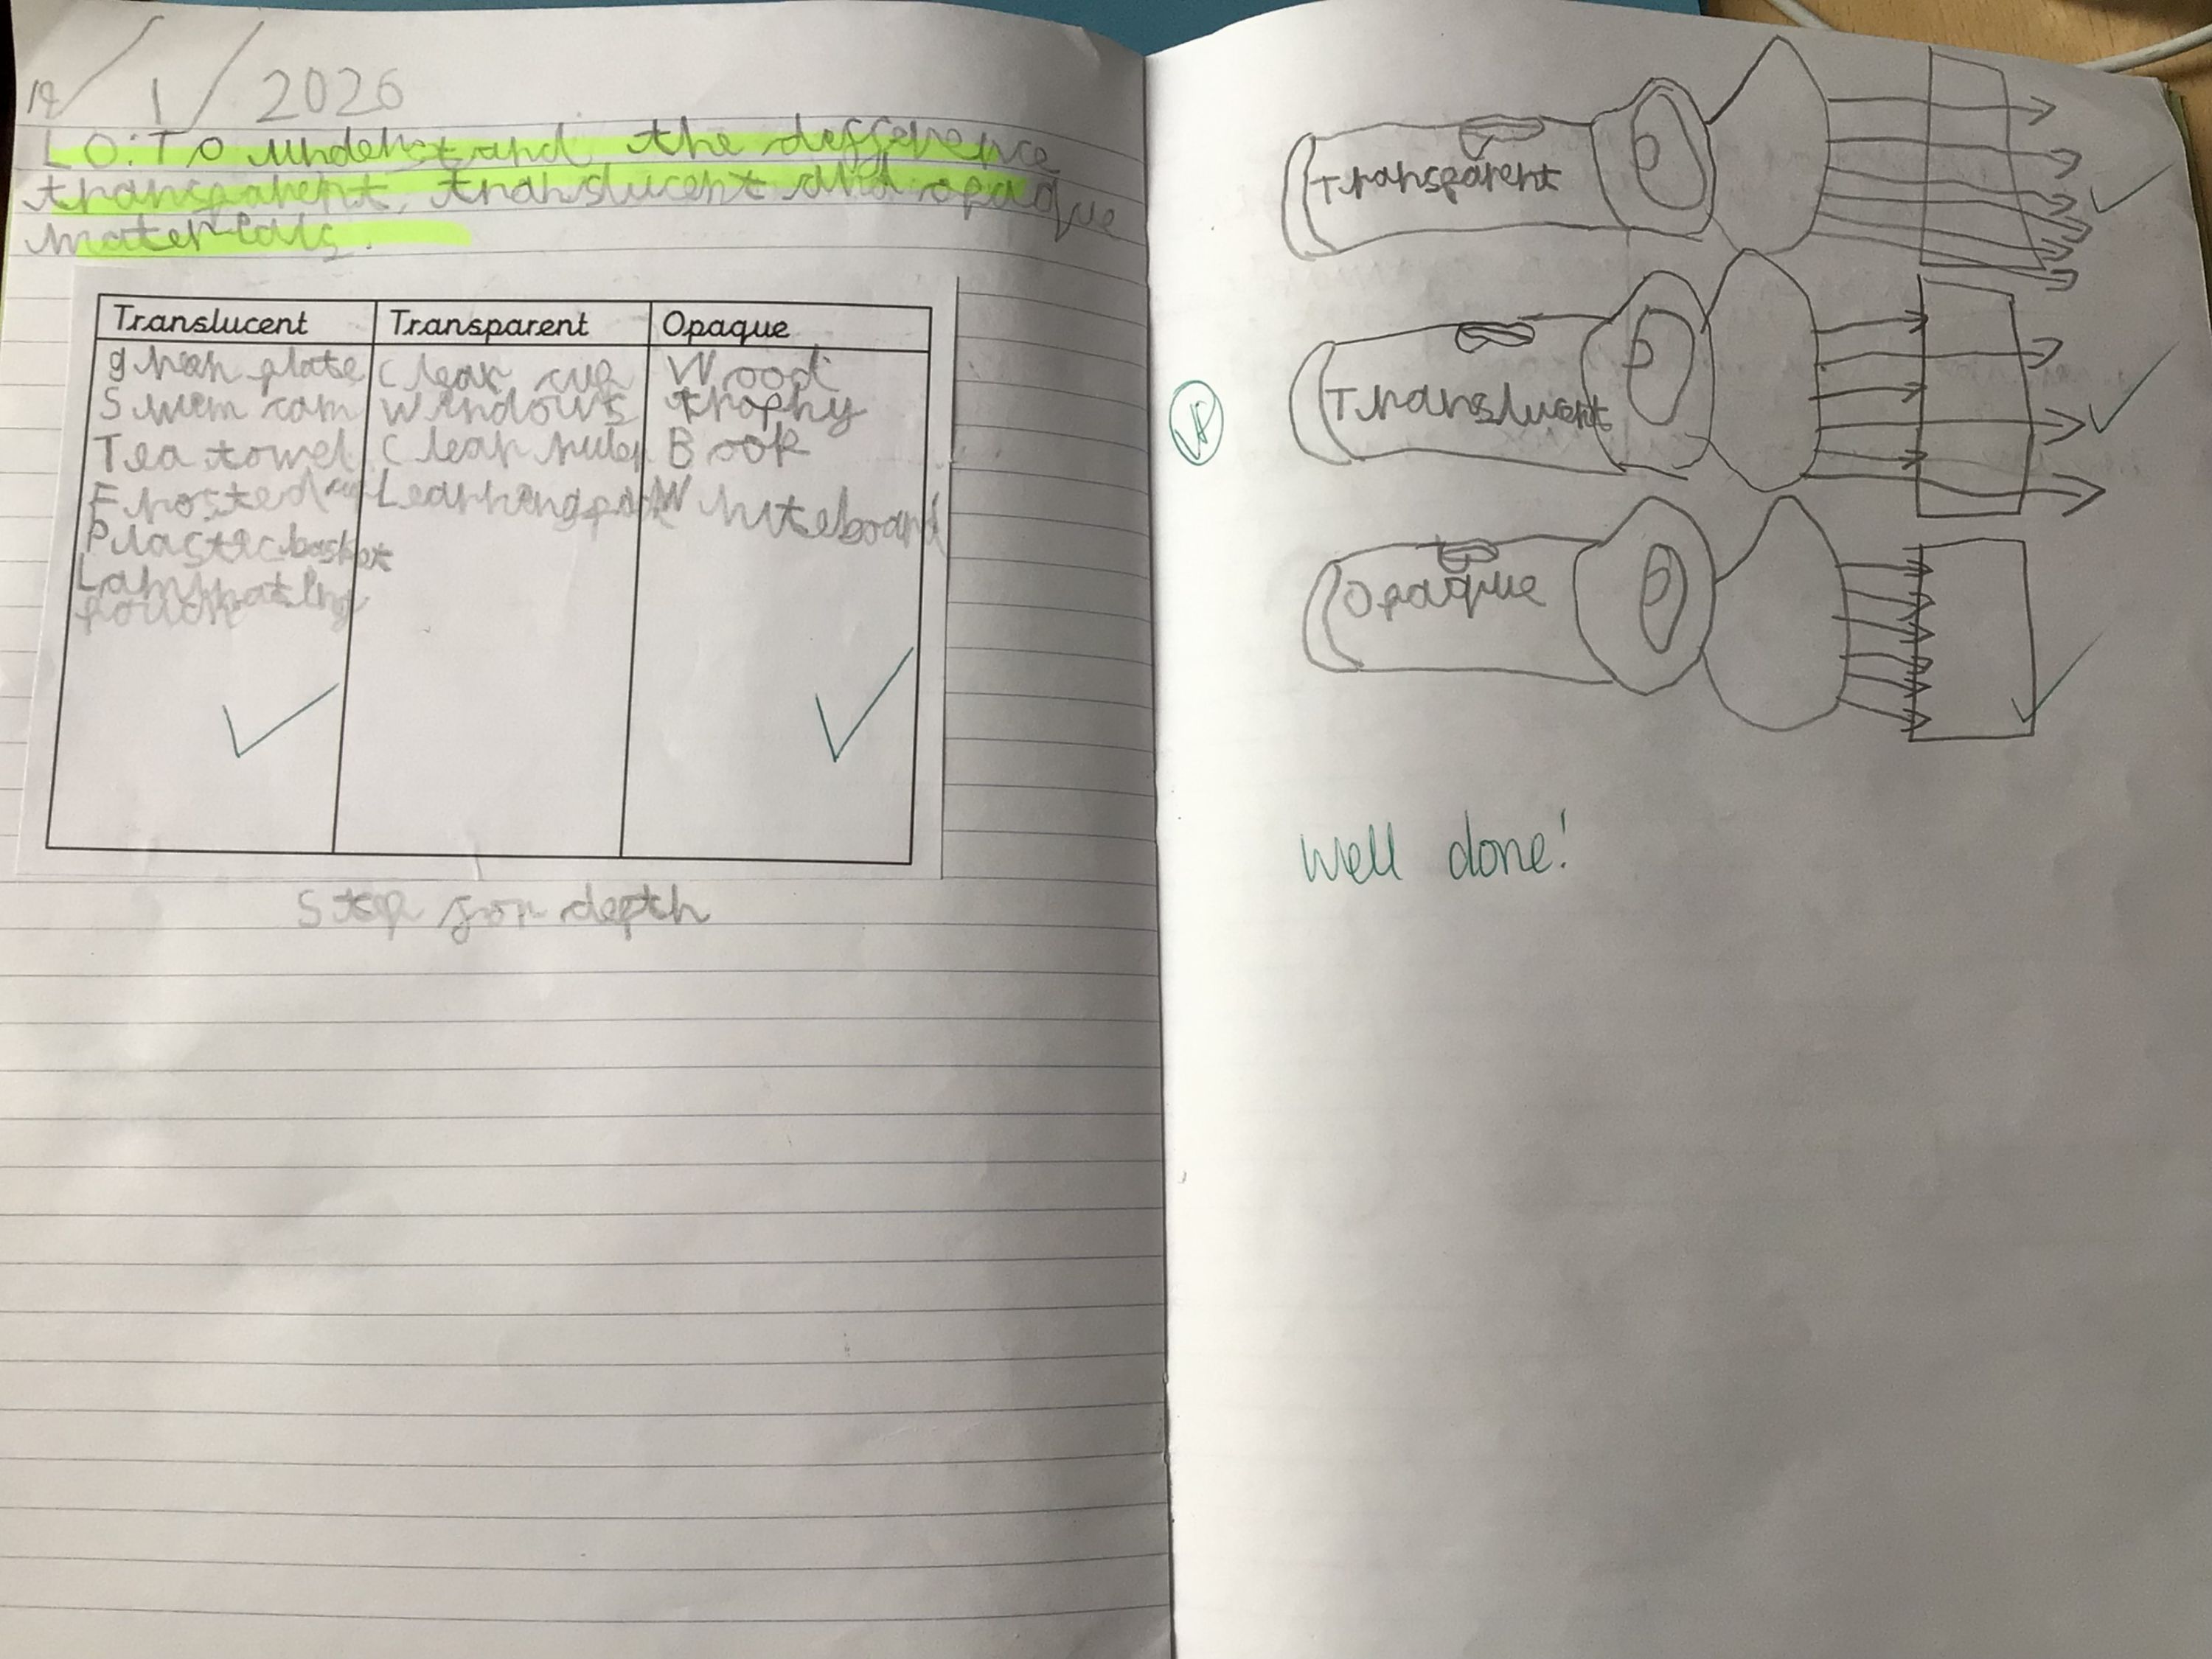 / 1 / 2026
LO: To understand the difference
transparent, translucent and opaque
materials.
Translucent Transparent Opaque
green plate clear cup Wood
Swim cam windows trophy
Tea towel clear ruler Book
Frosted Whiteboard
Plastic basket
Laminating
pouch
Step for depth
Transparent
Translucent
Opaque
Well done!